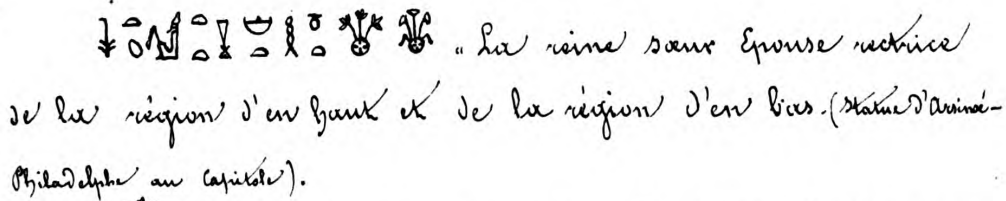 „ La reine sœur Epouse rectrice
de la région d'en haut et de la région d'en bas. (Statue d'Arsinoé-
Philadelphe au Capitole).